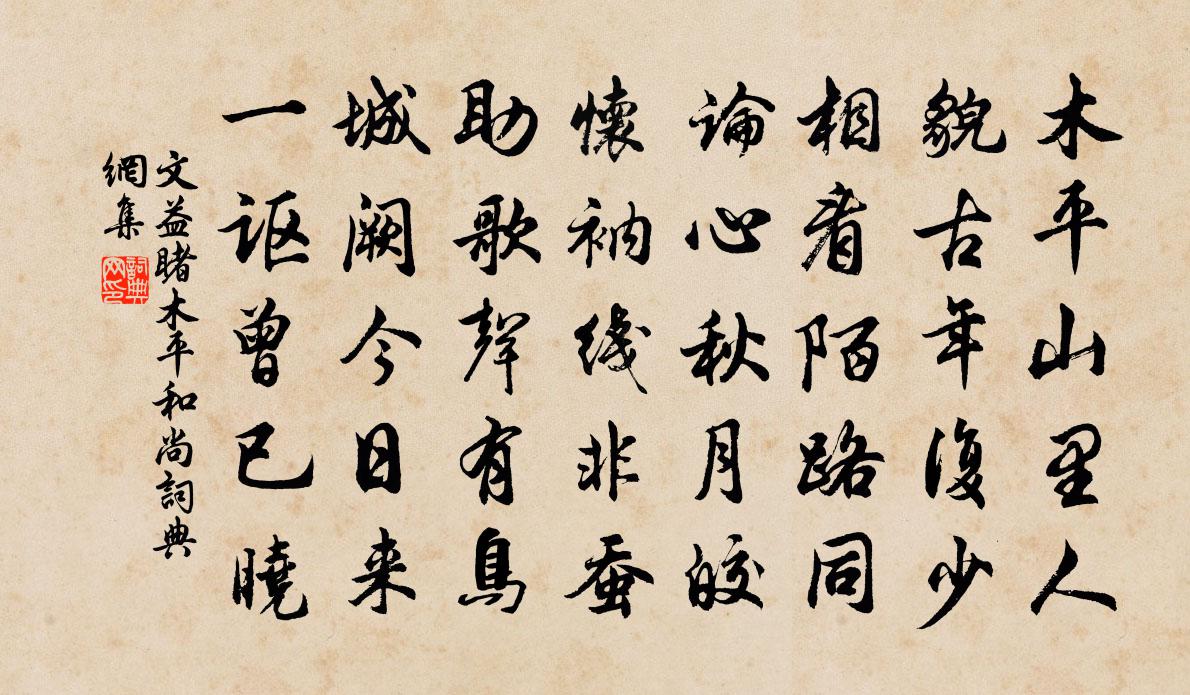 木平山里人
貌古年復少
相看陌路同
論心秋月皎
懷衲线非蚕
助歌聲有鳥
城阙今日来
一讴曾已曉
文益睹木平和尚詞典
網集
詞典
网印